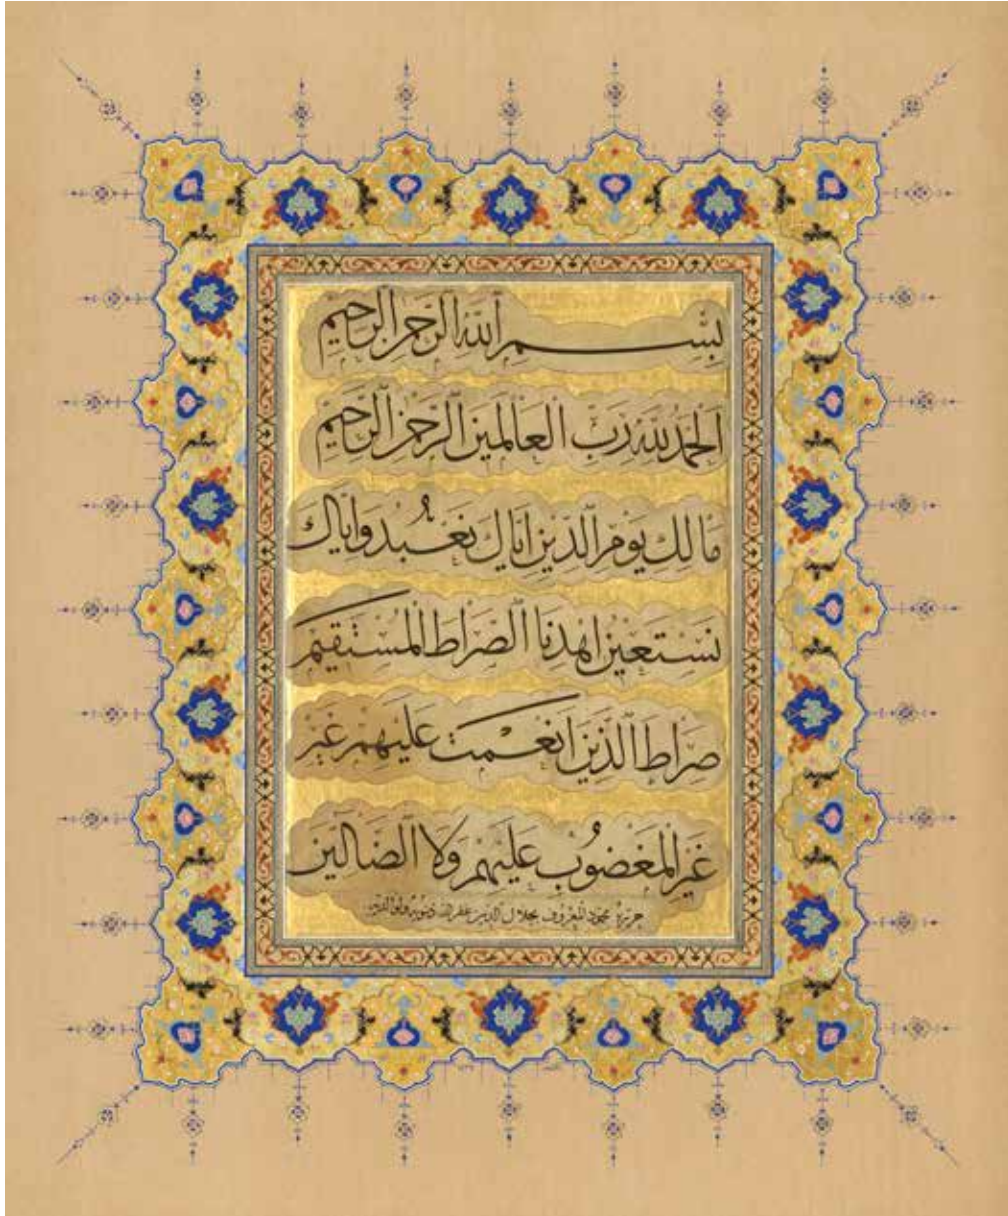 بسم الله الرحمن الرحيم
الحمد لله رب العالمين الرحمن الرحيم
مالك يوم الدين اياك نعبد واياك
نستعين اهدنا الصراط المستقيم
صراط الذين انعمت عليهم غير
غير المغضوب عليهم ولا الضالين
حرره محمود المعروف بجلال الدين غفر الله ذنوبه